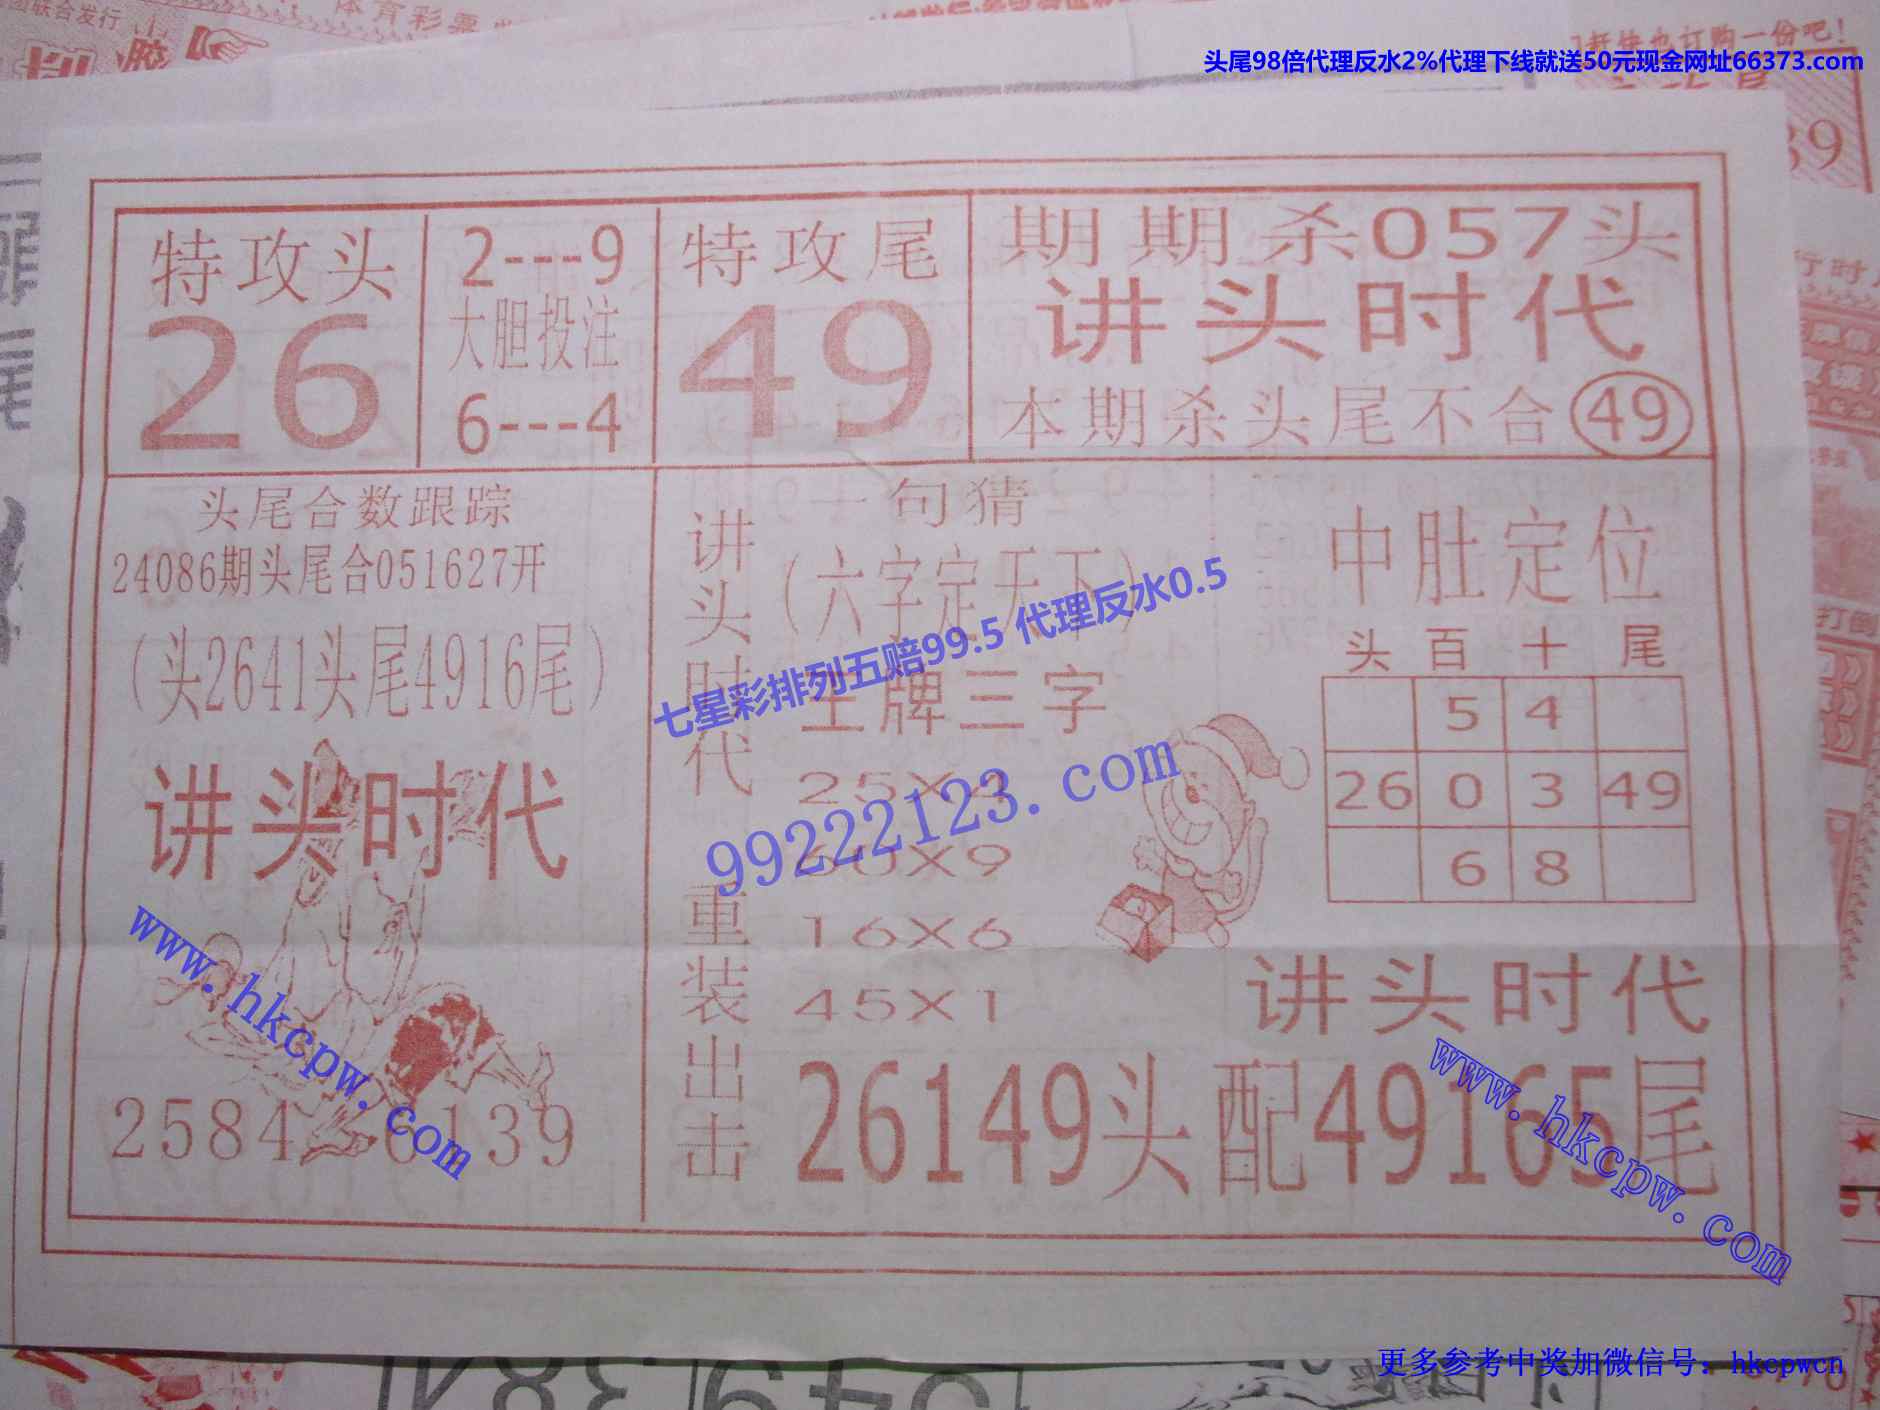 团联合发行
体育彩票
赶快也订购一份吧!
头尾98倍代理反水2%代理下线就送50元现金网址66373.com
特攻头
26
2---9
大胆投注
6---4
特攻尾
49
期期杀057头
讲头时代
本期杀头尾不合 49
头尾合数跟踪
24086期头尾合051627开
(头2641头尾4916尾)
讲头时代
2584 6139
讲头时代
重装出击
一句猜
(六字定天下)
王牌三字
25X4
60X9
16X6
45X1
七星彩排列五赔99.5 代理反水0.5
99222123.com
中肚定位
头 百 十 尾
5 4
26 0 3 49
6 8
讲头时代
26149头配49165尾
www.hkcpw.com
www.hkcpw.com
更多参考中奖加微信号: hkcpwcn